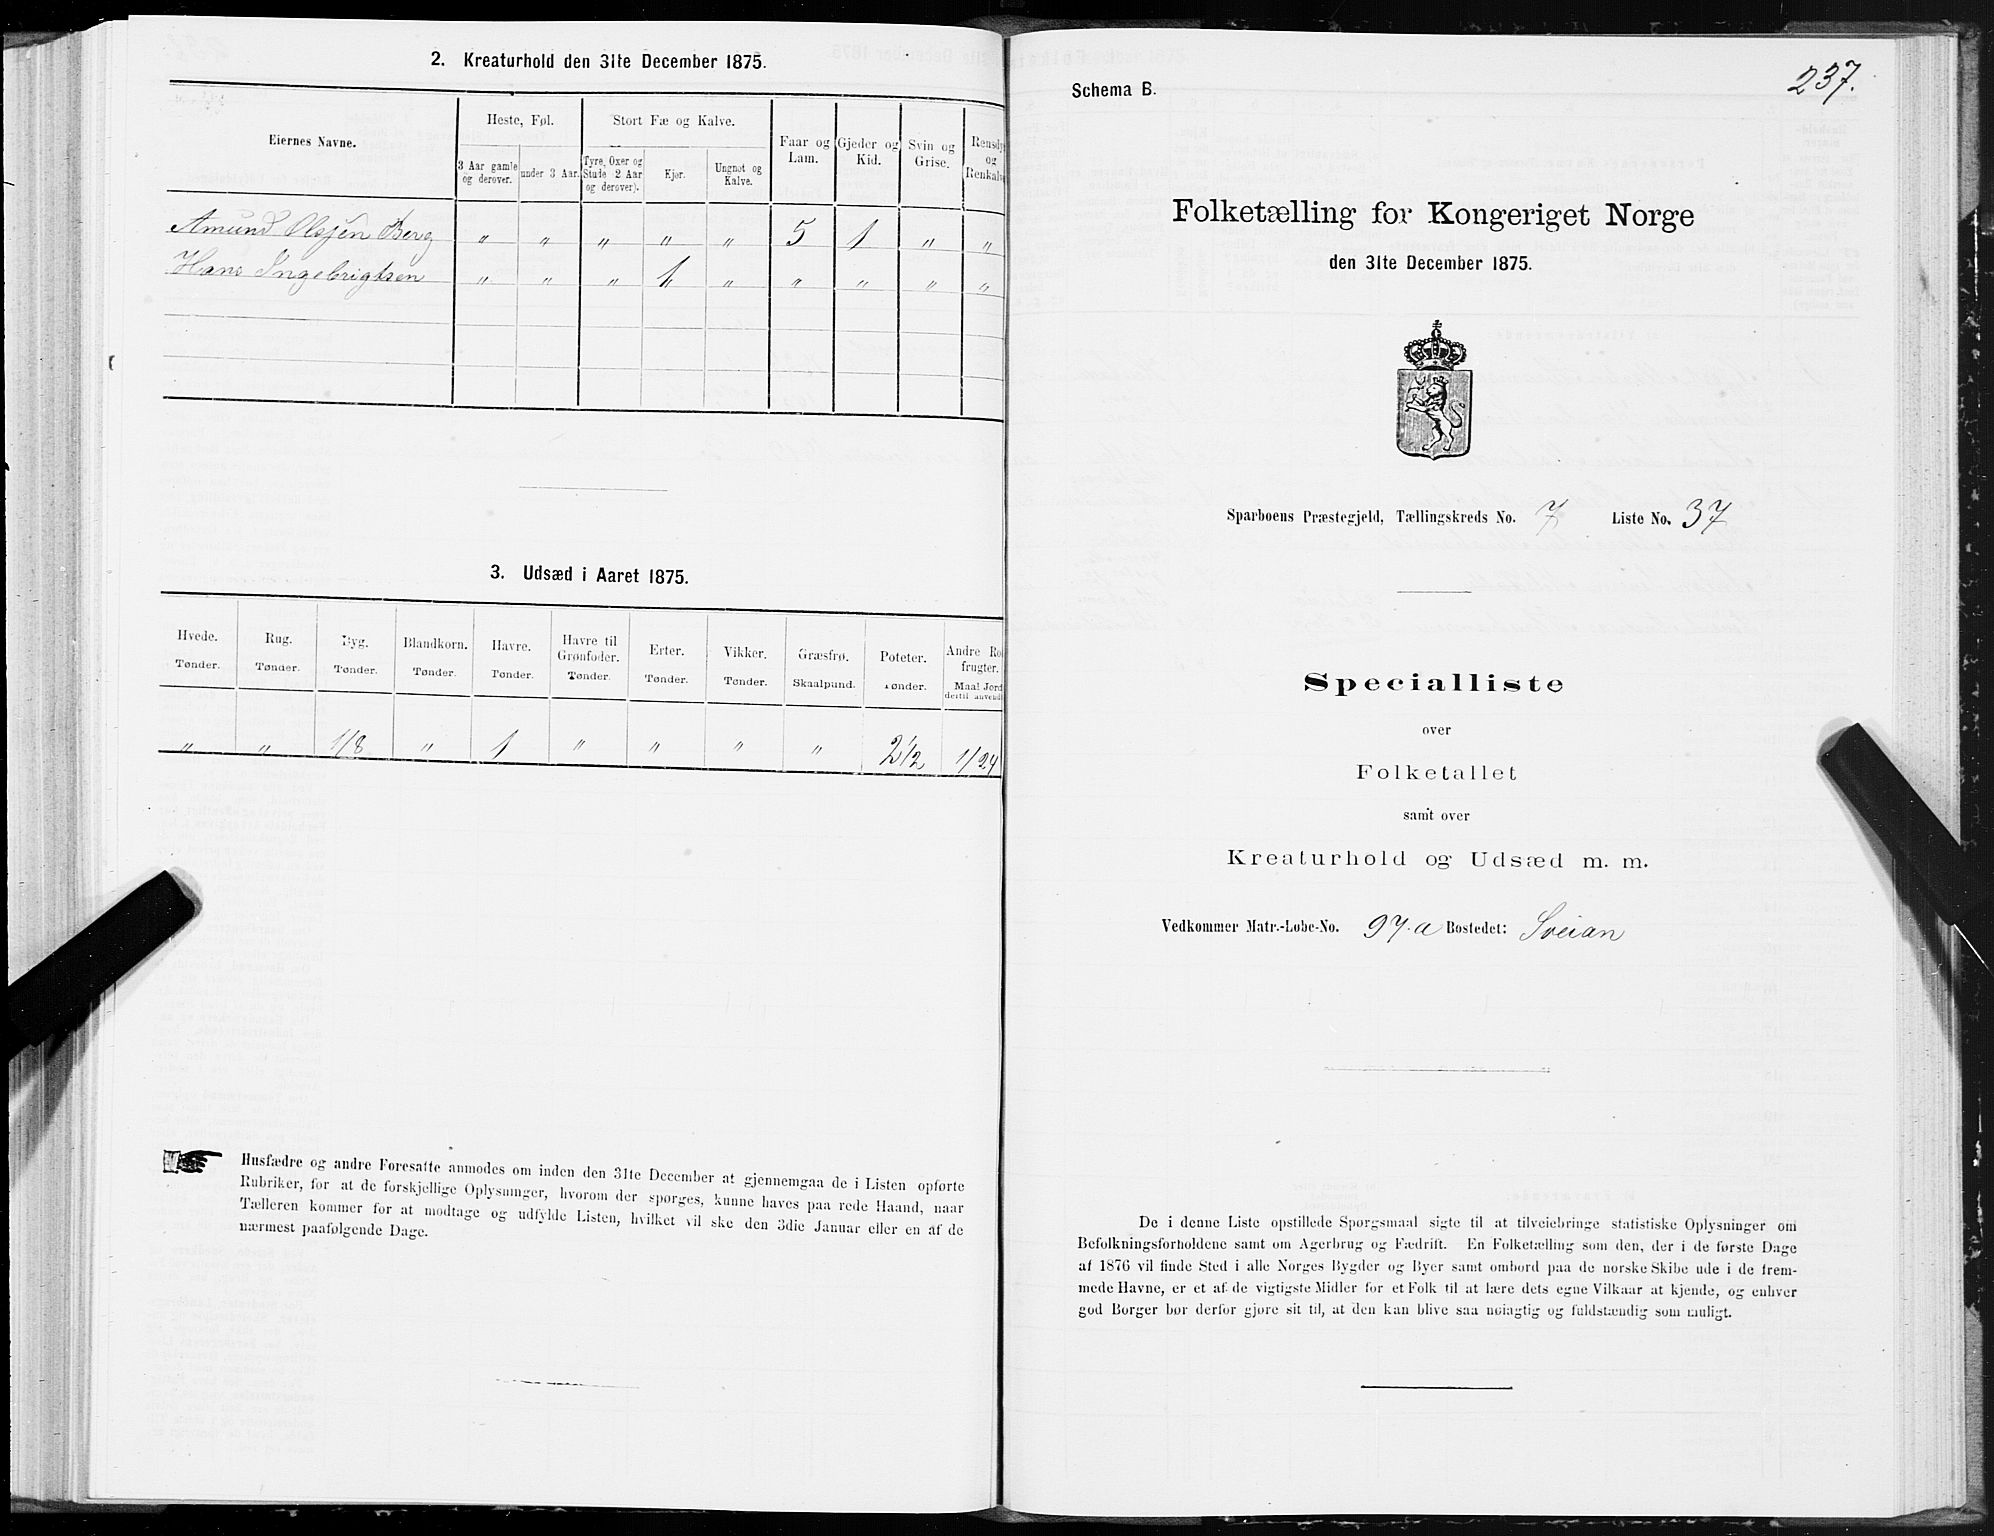 2. Kreaturhold den 31te December 1875.
Eiernes Navne.
Heste, Føl.
Stort Fæ og Kalve.
Faar og Lam.
Gjeder og Kid.
Svin og Grise.
Rensdyr og Renkalve
3 Aar gamle og derover.
under 3 Aar.
Tyre, Oxer og Stude (2 Aar og derover).
Kjør.
Ungnøt og Kalve.
Amund Olsjen Berg " " " " " 5 1 " "
Hans Ingebrigtsen " " " 1 " " " " "
3. Udsæd i Aaret 1875.
Hvede. Rug. Byg. Blandkorn. Havre. Havre til Grønfoder. Erter. Vikker. Græsfrø. Poteter. Andre Rodfrugter.
Tønder. Tønder. Tønder. Tønder. Tønder. Tønder. Tønder. Tønder. Skaalpund. Tønder. Maal Jord dertil anvendt
" " 1/8 " 1 " " " " 2 1/2 1/24
Husfædre og andre Foresatte anmodes om inden den 31te December at gjennemgaa de i Listen opførte
Rubriker, for at de forskjellige Oplysninger, hvorom der spørges, kunne haves paa rede Haand, naar
Tælleren kommer for at modtage og udfylde Listen, hvilket vil ske den 3die Januar eller en af de
nærmest paafølgende Dage.
237.
Schema B.
Folketælling for Kongeriget Norge
den 31te December 1875.
Sparboens Præstegjeld, Tællingskreds No. 7 Liste No. 37
Specialliste
over
Folketallet
samt over
Kreaturhold og Udsæd m. m.
Vedkommer Matr.-Løbe-No. 97.a Bostedet: Sveian
De i denne Liste opstillede Spørgsmaal sigte til at tilveiebringe statistiske Oplysninger om
Befolkningsforholdene samt om Agerbrug og Fædrift. En Folketælling som den, der i de første Dage
af 1876 vil finde Sted i alle Norges Bygder og Byer samt ombord paa de norske Skibe ude i de frem-
mede Havne, er et af de vigtigste Midler for et Folk til at lære dets egne Vilkaar at kjende, og enhver
god Borger bør derfor gjøre sit til, at den kan blive saa nøiagtig og fuldstændig som muligt.